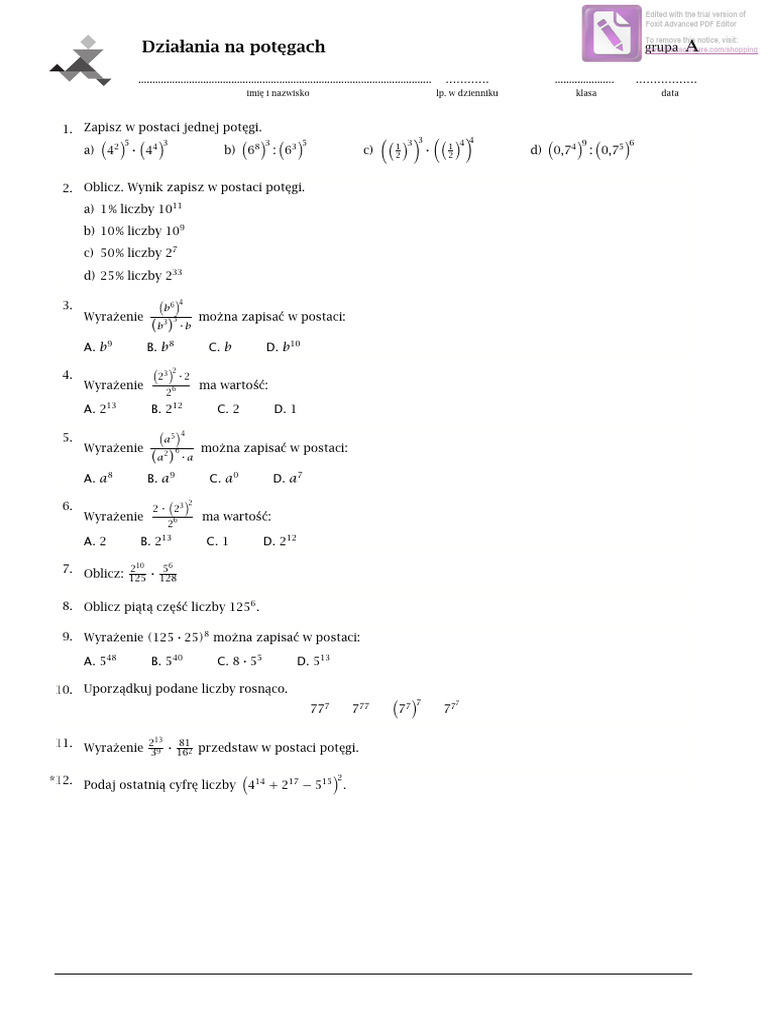 Edited with the trial version of
Foxit Advanced PDF Editor
To remove this notice, visit:
Działania na potęgach
grupa A
imię i nazwisko lp. w dzienniku klasa data
1. Zapisz w postaci jednej potęgi.
a) (4²)⁵ · (4⁴)³ b) (6⁸)³ : (6³)⁵ c) ((1/2)³)³ · ((1/2)⁴)⁴ d) (0,7⁴)⁹ : (0,7⁵)⁶
2. Oblicz. Wynik zapisz w postaci potęgi.
a) 1% liczby 10¹¹
b) 10% liczby 10⁹
c) 50% liczby 2⁷
d) 25% liczby 2³³
3. Wyrażenie (b⁶)⁴/((b³)⁵ · b) można zapisać w postaci:
A. b⁹ B. b⁸ C. b D. b¹⁰
4. Wyrażenie ((2³)² · 2)/2⁶ ma wartość:
A. 2¹³ B. 2¹² C. 2 D. 1
5. Wyrażenie (a⁵)⁴/((a²)⁶ · a) można zapisać w postaci:
A. a⁸ B. a⁹ C. a⁰ D. a⁷
6. Wyrażenie (2 · (2³)²)/2⁶ ma wartość:
A. 2 B. 2¹³ C. 1 D. 2¹²
7. Oblicz: 2¹⁰/125 · 5⁶/128
8. Oblicz piątą część liczby 125⁶.
9. Wyrażenie (125 · 25)⁸ można zapisać w postaci:
A. 5⁴⁸ B. 5⁴⁰ C. 8 · 5⁵ D. 5¹³
10. Uporządkuj podane liczby rosnąco.
77⁷ 7⁷⁷ (7⁷)⁷ 7^(7⁷)
11. Wyrażenie 2¹³/3⁹ · 81/16² przedstaw w postaci potęgi.
*12. Podaj ostatnią cyfrę liczby (4¹⁴ + 2¹⁷ − 5¹⁵)².